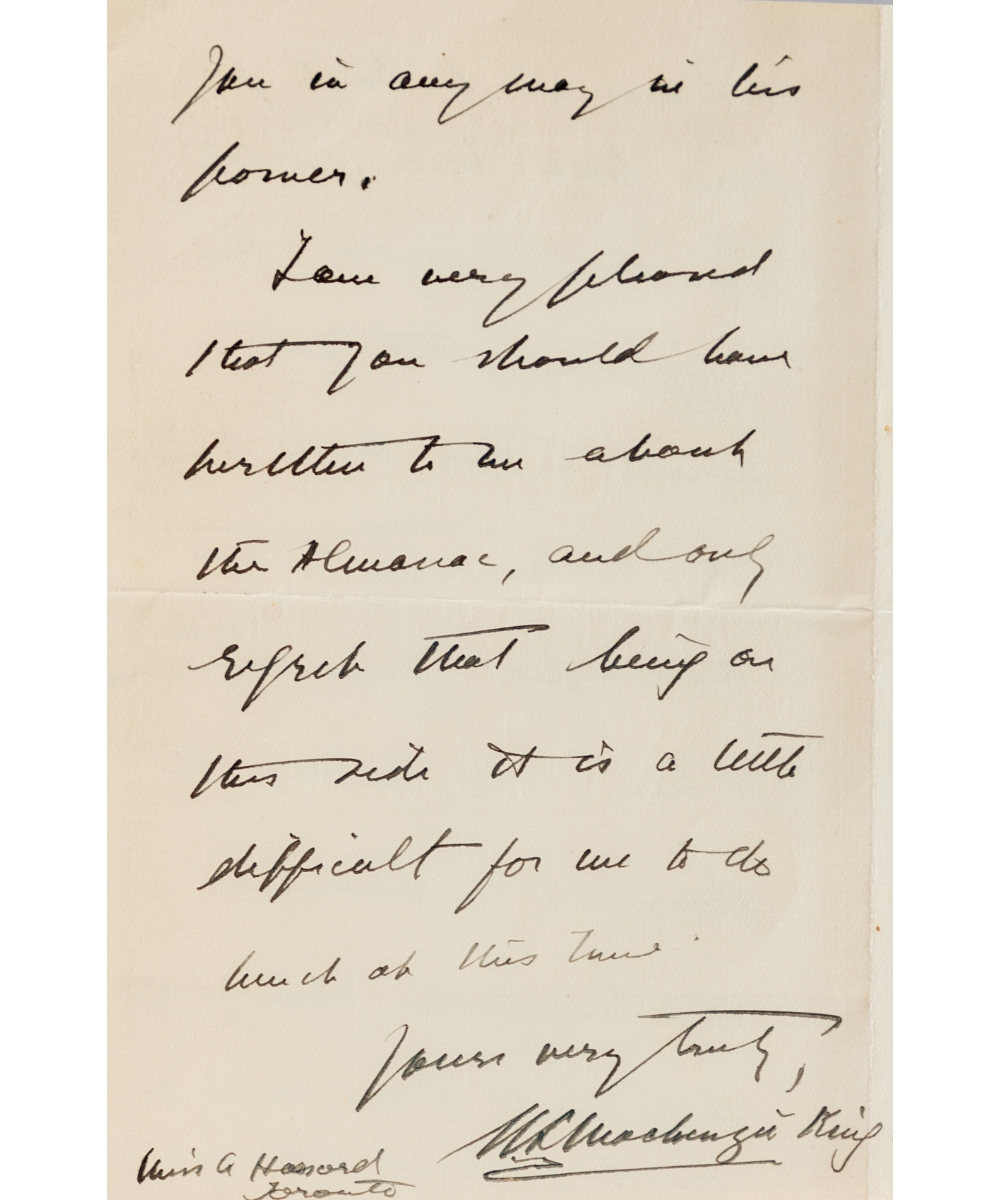 you in any way in his
power.
I am very pleased
that you should have
written to me about
the Almanac, and only
regret that being on
this side it is a little
difficult for me to do
much at this time.
Yours very truly,
WL Mackenzie King
Miss A Hassard
Toronto